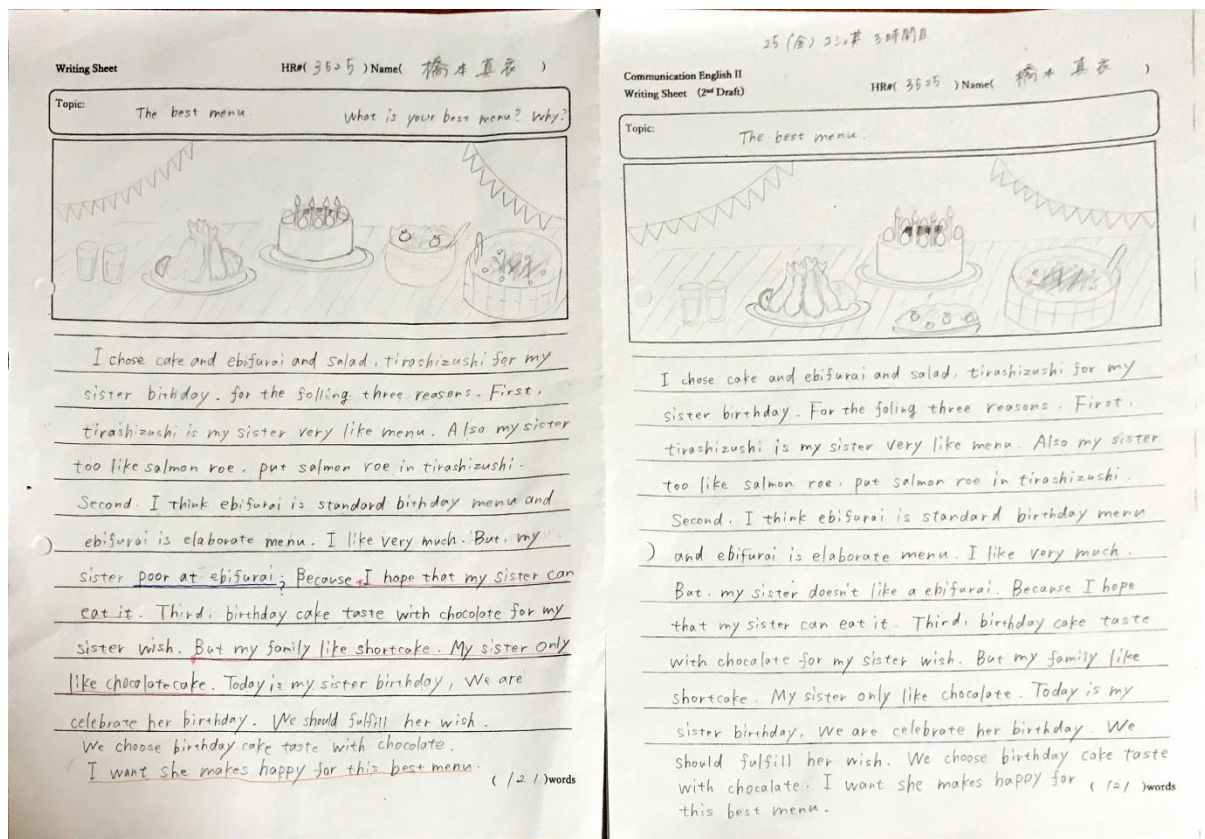 Writing Sheet HR#( 3525 ) Name( 橋本 真衣 )
Topic: The best menu. What is your best menu? Why?
I chose cake and ebifurai and salad, tirashizushi for my
sister birhday. for the folling three reasons. First,
tirashizushi is my sister very like menu. Also my sister
too like salmon roe, put salmon roe in tirashizushi.
Second. I think ebifurai is standard bithday menu and
ebifurai is elaborate menu. I like very much. But, my
sister poor at ebifurai; Because I hope that my sister can
?
eat it. Third, birthday cake taste with chocolate for my
sister wish. But my family like shortcake. My sister only
like chocolatecake. Today is my sister birthday, We are
celebrate her birthday. We should fulfill her wish.
We choose birthday cake taste with chocolate.
I want she makes happy for this best menu.
( 121 )words
25 (金) 3時間目
Communication English II
Writing Sheet (2nd Draft) HR#( 3525 ) Name( 橋本 真衣 )
Topic: The best menu.
I chose cake and ebifurai and salad, tirashizushi for my
sister birthday. For the foling three reasons. First,
tirashizushi is my sister very like menu. Also my sister
too like salmon roe, put salmon roe in tirashizushi.
Second. I think ebifurai is standard birthday menu
and ebifurai is elaborate menu. I like very much.
But, my sister doesn't like a ebifurai. Because I hope
that my sister can eat it. Third, birthday cake taste
with chocolate for my sister wish. But my family like
shortcake. My sister only like chocolate. Today is my
sister birthday, We are celebrate her birthday. We
should fulfill her wish. We choose birthday cake taste
with chocolate. I want she makes happy for ( 121 )words
this best menu.